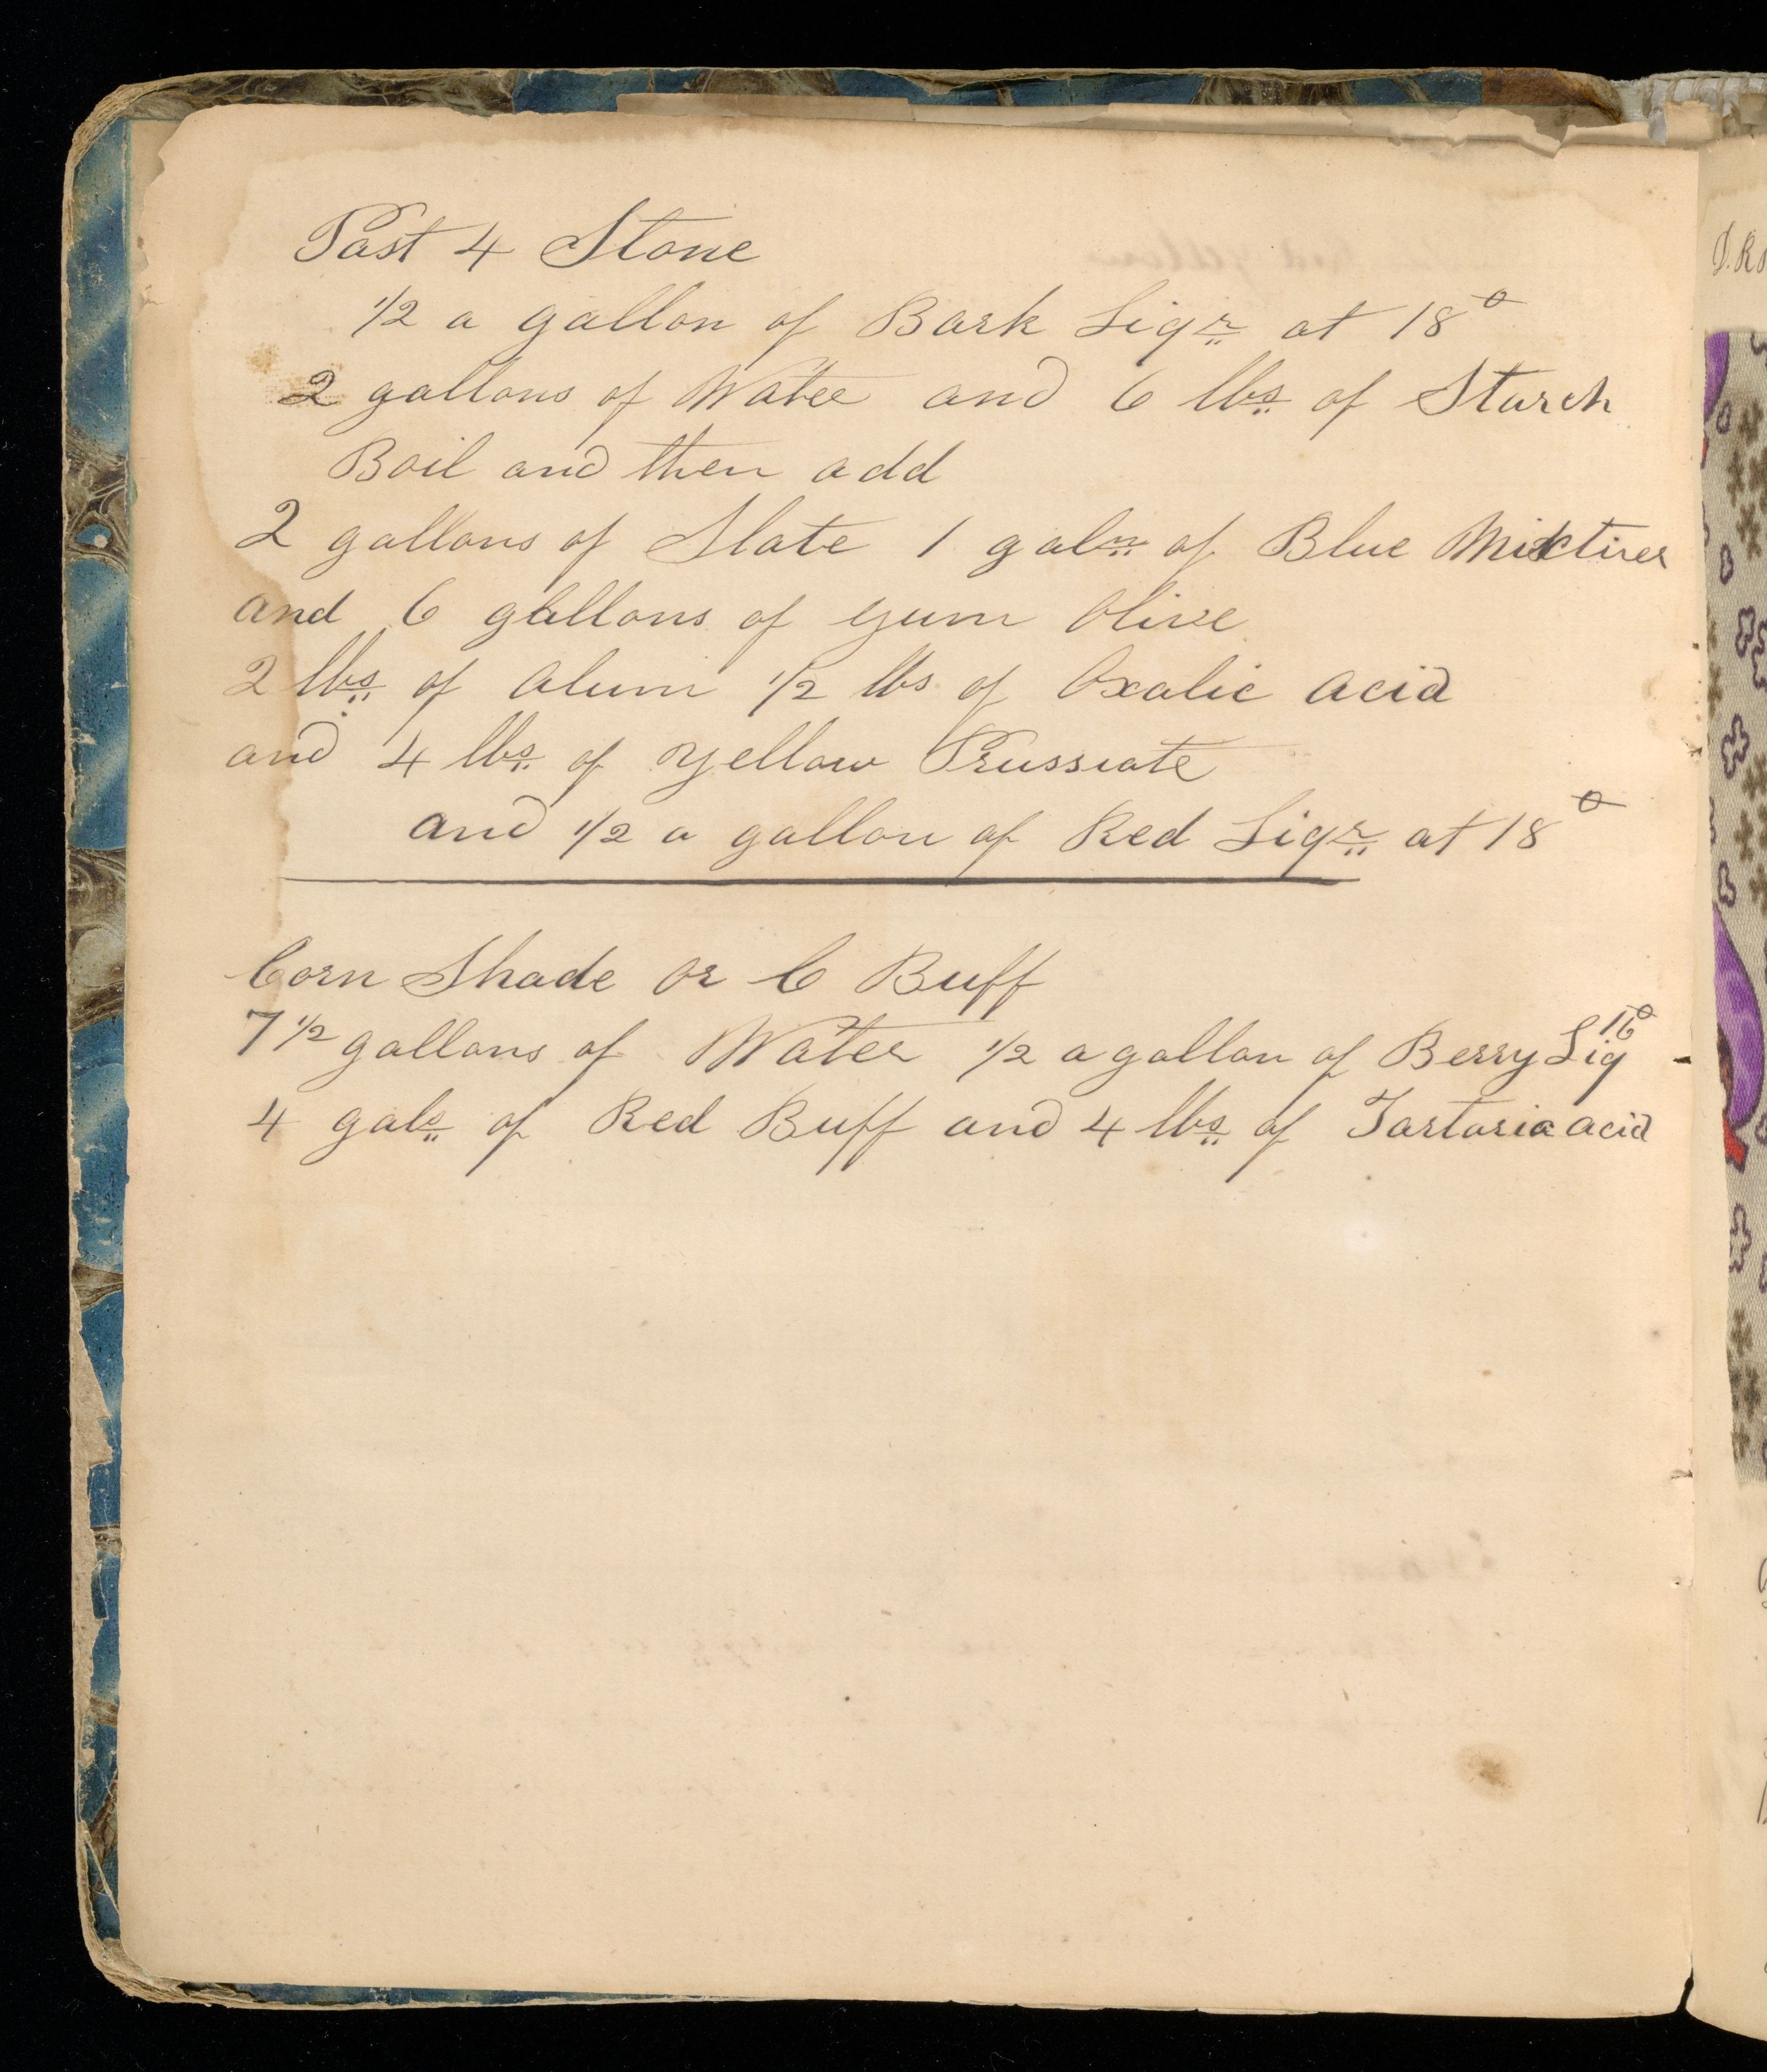 Past 4 Stone
1/2 a gallon of Bark Liqr at 18°
2 gallons of Water and 6 lbs of Starch
Boil and then add
2 gallons of Slate 1 galn of Blue Mixtures
and 6 gallons of gum Olive
2 lbs of Alum 1/2 lbs of Oxalic acid
and 4 lbs of Yellow Prussiate
and 1/2 a gallon of Red Liqr at 18°
Corn Shade Or C Buff
7 1/2 gallons of Water 1/2 a gallon of Berry Liq 16°
4 gals of Red Buff and 4 lbs of Tartaric acid